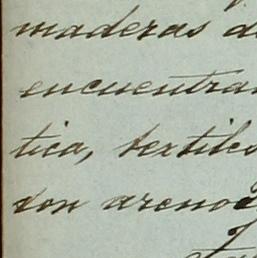 maderas de
encuentran
tica, textiles
ton areno